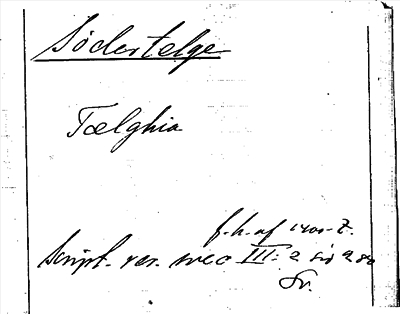 Södertelge
Tælghia
f.h. af 1400-t.
Script. rer. svec III: 2 sid 280
Sv.